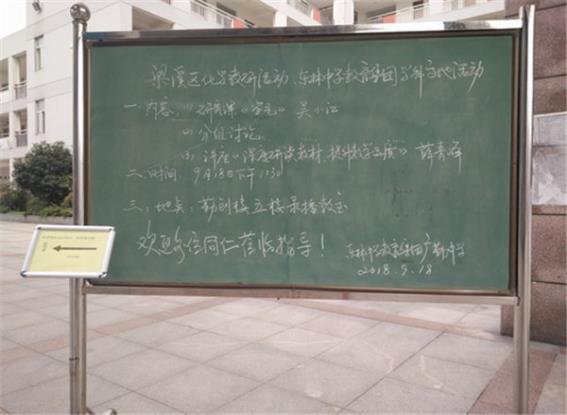 梁溪区化学教研活动、东林中学教育集团学科基地活动
一.内容:(1)研究课《空气》 吴小江
(2)分组讨论
(3)讲座《深度研读教材,提升教学品质》薛青峰
二.时间: 9月18日下午1:30
三.地点: 勤创楼五楼录播教室
欢迎各位同仁莅临指导!
东林中学教育集团广勤中学
2018.9.18